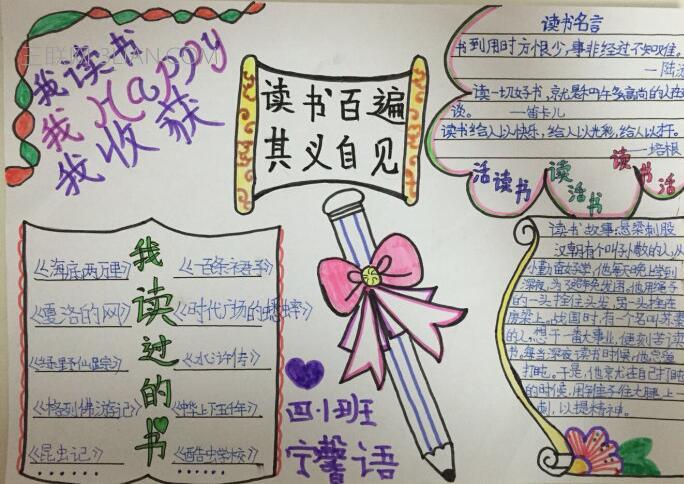 三联网 3LIAN.COM
我读书
我Happy
我收获
读书百遍
其义自见
读书名言
书到用时方恨少,事非经过不知难。
—陆游
读一切好书,就是和许多高尚的人在
谈。 —笛卡儿
读书给人以快乐,给人以光彩,给人以才干。
—培根
活读书
读活书
读书活
我读过的书
《海底两万里》
《一百条裙子》
《夏洛的网》
《时代广场的蟋蟀》
《绿野仙踪》
《水浒传》
《格列佛游记》
《中华上下五千年》
《昆虫记》
《酷虫学校》
……
……
四小班
宁馨语
读书故事:悬梁刺股
汉朝有个叫孙敬的人,从
小勤奋好学,他每天晚上学到
深夜,为了避免发困,他用绳子
的一头拴住头发,另一头拴在
房梁上。战国时,有个名叫苏秦
的人,想干一番大事业,便刻苦读
书,每当深夜读书时候,他总爱
打盹。于是,他就在自己打盹
的时候,用锥子往大腿上一
刺,以提精神。